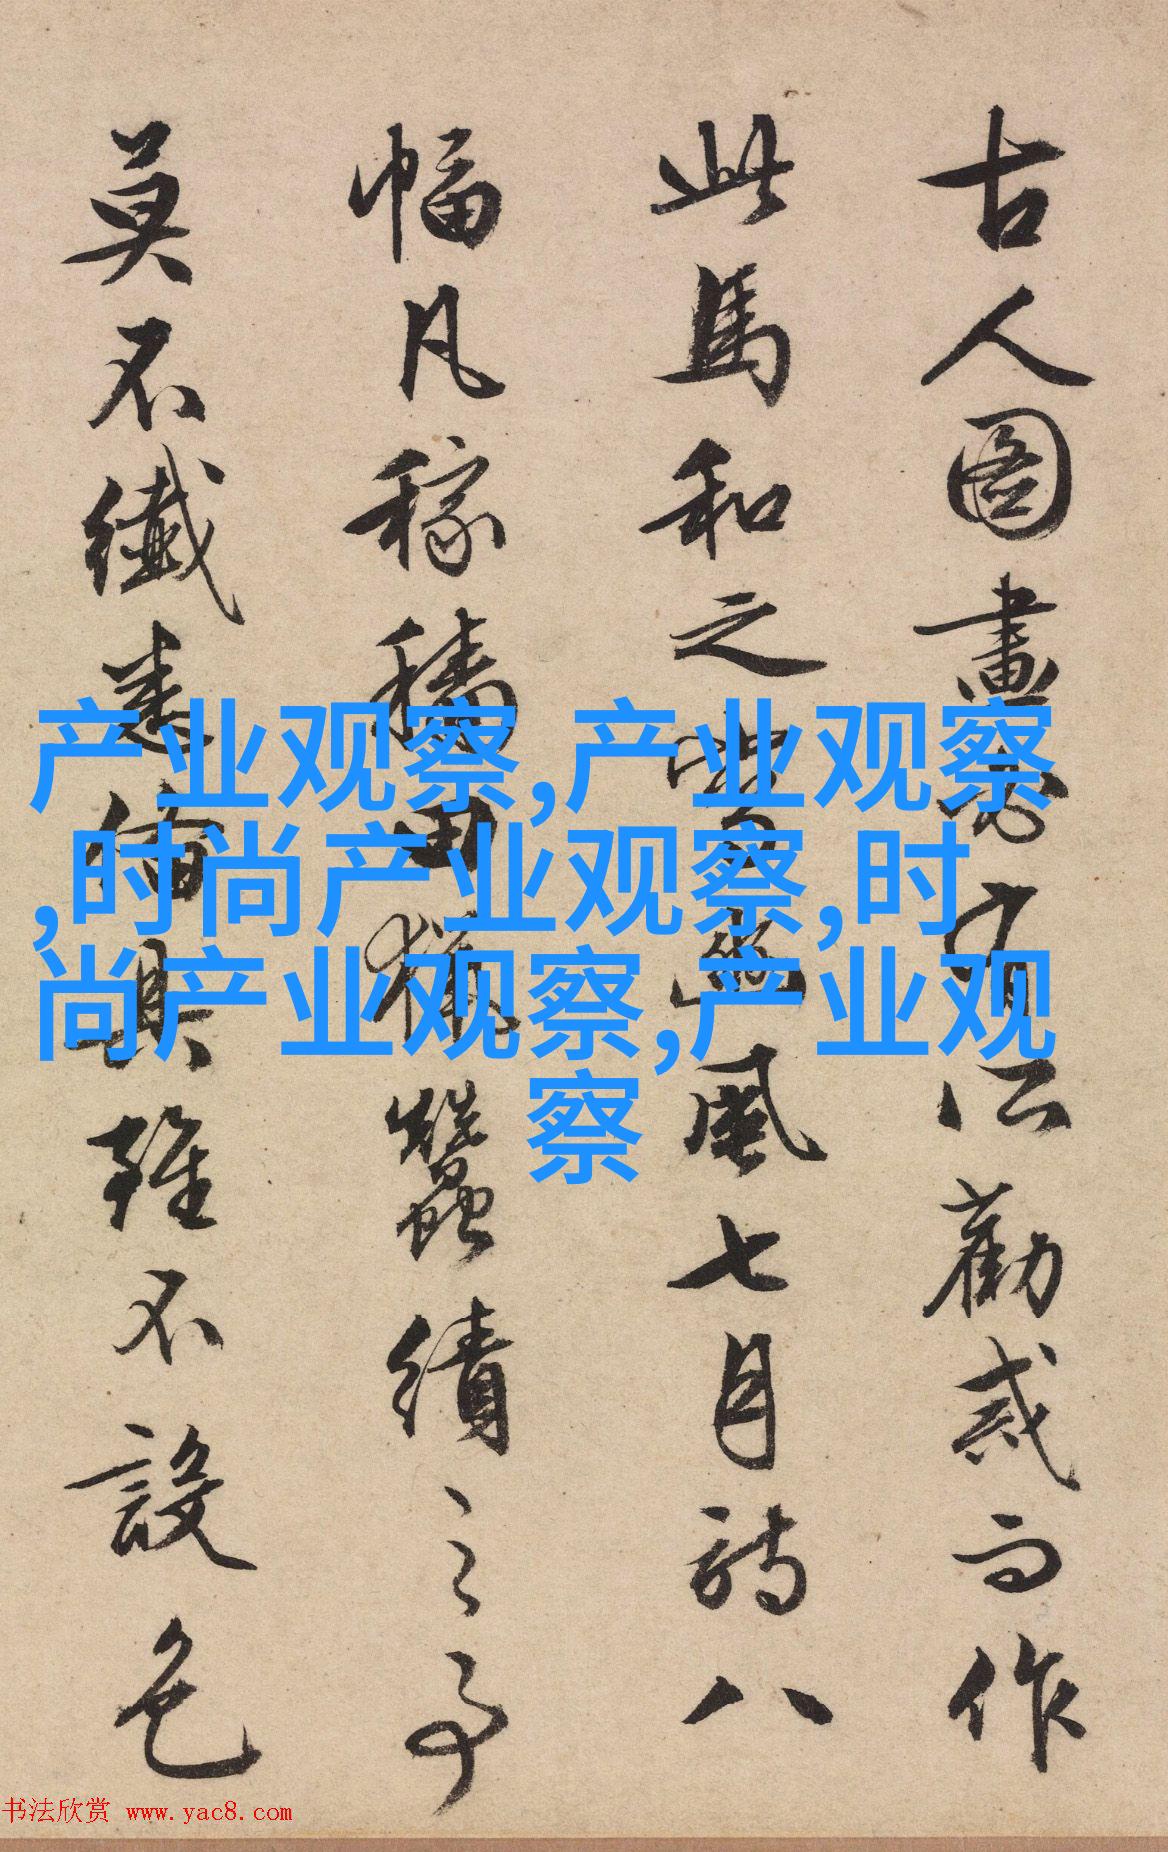 古人圖畫無有不勸戒而作
此馬和之豳風七月詩八
幅凡稼穡田獵蠶績之事
莫不纖悉備具雖不設色
产业观察,产业观察
,时尚产业观察,时
尚产业观察,产业观
察
书法欣赏 www.yac8.com